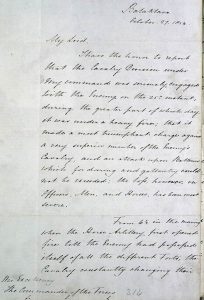 Balaklava
October 27. 1854
My Lord,
I have the honor to report
that the Cavalry Division under
my command was seriously engaged
with the Enemy on the 25th instant,
during the greater part of which day
it was under a heavy fire; that it
made a most triumphant charge against
a very superior number of the Enemy's
Cavalry, and an attack upon Batteries
which for daring and gallantry could
not be exceeded. the loss however in
Officers, Men, and Horses, has been most
severe.
From in the morning
when the Horse Artillery first opened
fire till the Enemy had possessed
itself of all the different Forts, the
Cavalry constantly changing their
His Excellency
The Commander of the Forces
316